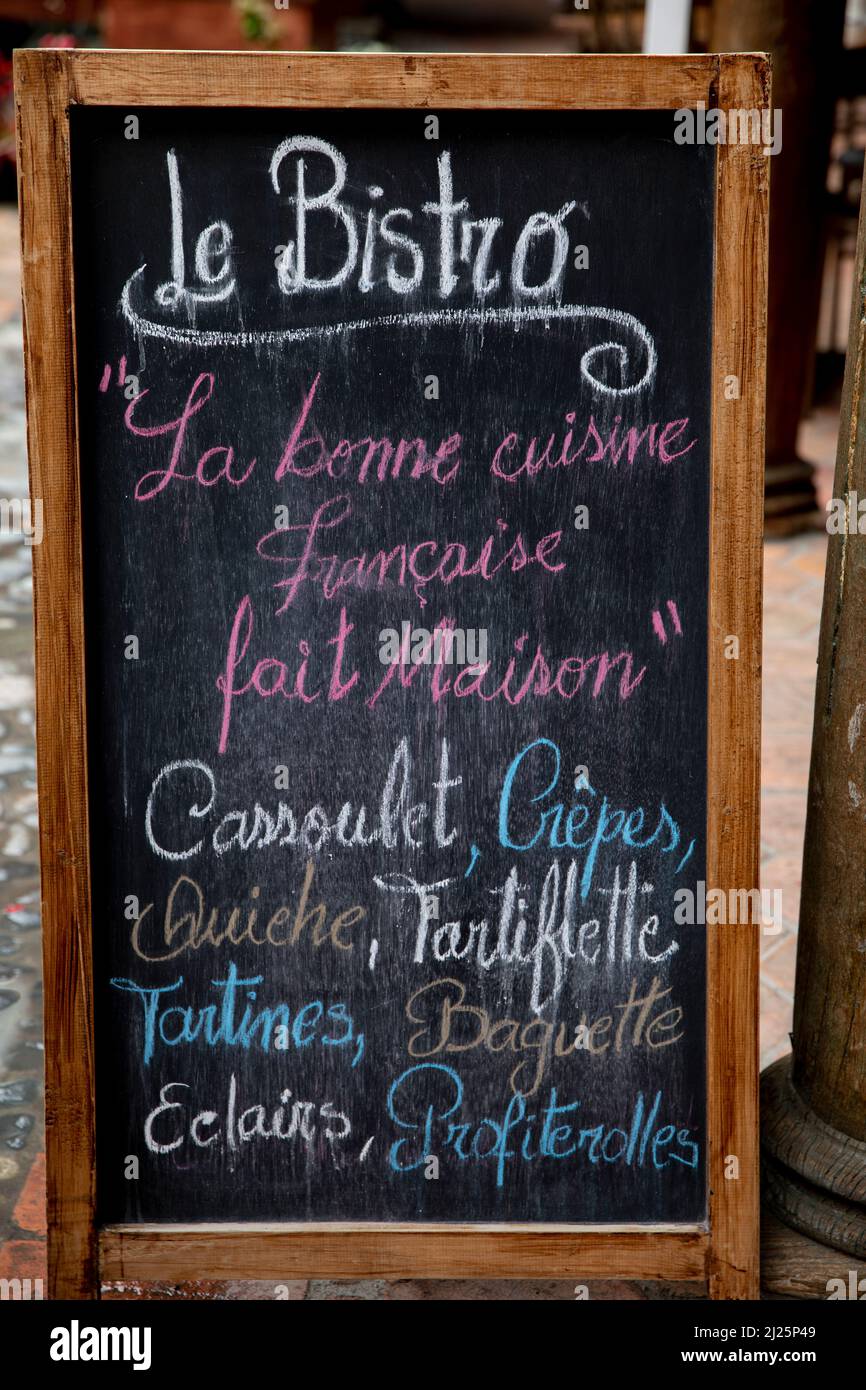 Le Bistro
"La bonne cuisine
Française
fait Maison"
Cassoulet, Crêpes,
Quiche, Tartiflette
Tartines, Baguette
Eclairs, Profiterolles
alamy
Image ID: 2J25P49
www.alamy.com